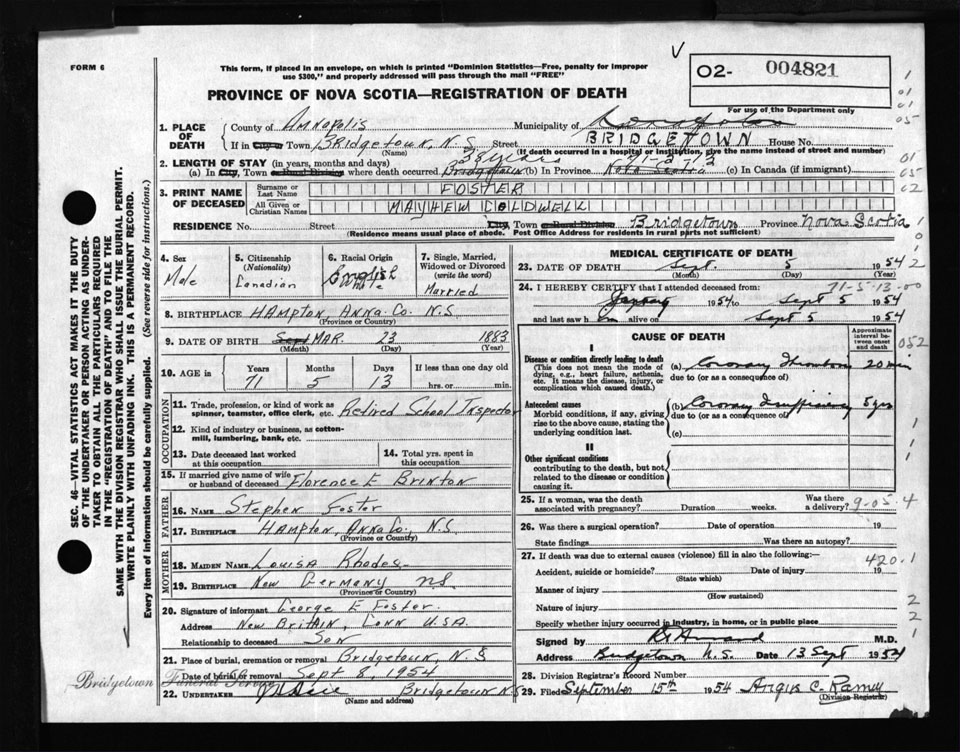 FORM 6
This form, if placed in an envelope, on which is printed "Dominion Statistics—Free, penalty for improper
use $300," and properly addressed will pass through the mail "FREE"
O2- 004821
For use of the Department only
PROVINCE OF NOVA SCOTIA—REGISTRATION OF DEATH
1. PLACE OF DEATH
County of Annapolis Municipality of
If in City or Town Bridgetown, N.S. Street BRIDGETOWN House No.
(Name) (If death occurred in a hospital or institution, give the name instead of street and number)
2. LENGTH OF STAY (in years, months and days) 38 years 71-5-13
(a) In City, Town or Rural Division where death occurred Bridgetown (b) In Province Nova Scotia (c) In Canada (if immigrant)
3. PRINT NAME OF DECEASED
Surname or Last Name FOSTER
All Given or Christian Names MAYHEW COLDWELL
RESIDENCE No. Street City, Town or Rural Division Bridgetown Province Nova Scotia
(Residence means usual place of abode. Post Office Address for residents in rural parts not sufficient)
4. Sex Male
5. Citizenship (Nationality) Canadian
6. Racial Origin English White
7. Single, Married, Widowed or Divorced (write the word) Married
8. BIRTHPLACE HAMPTON, ANNA. Co. N.S.
(Province or Country)
9. DATE OF BIRTH Sept MAR. 23 1883
(Month) (Day) (Year)
10. AGE Years 71 Months 5 Days 13 If less than one day old hrs. or min.
OCCUPATION
11. Trade, profession, or kind of work as spinner, teamster, office clerk, etc. Retired School Inspector
12. Kind of industry or business, as cotton-mill, lumbering, bank, etc.
13. Date deceased last worked at this occupation
14. Total yrs. spent in this occupation
15. If married give name of wife or husband of deceased Florence E Brinton
FATHER
16. Name Stephen Foster
17. Birthplace HAMPTON, ANNA Co., N.S.
(Province or Country)
MOTHER
18. MAIDEN NAME Louisa Rhodes
19. BIRTHPLACE New Germany NS
(Province or Country)
20. Signature of informant George E Foster.
Address New Britain, Conn U.S.A.
Relationship to deceased Son
21. Place of burial, cremation or removal Bridgetown, N.S
Date of burial or removal Sept 8, 1954
Bridgetown Funeral Service
22. UNDERTAKER Bridgetown N.S
(Name and address)
MEDICAL CERTIFICATE OF DEATH
23. DATE OF DEATH Sept. 5 1954
(Month) (Day) (Year)
24. I HEREBY CERTIFY that I attended deceased from: 71-5-13-00
January 1954 to Sept 5 1954
and last saw him alive on Sept 5 1954
CAUSE OF DEATH
Approximate interval between onset and death
052
I
Disease or condition directly leading to death
(This does not mean the mode of dying, e.g., heart failure, asthenia, etc. It means the disease, injury, or complication which caused death.)
(a) Coronary Thrombosis 20 min
due to (or as a consequence of)
Antecedent causes
Morbid conditions, if any, giving rise to the above cause, stating the underlying condition last.
(b) Coronary Insufficiency 5 yrs
due to (or as a consequence of)
(c)
II
Other significant conditions
contributing to the death, but not related to the disease or condition causing it.
25. If a woman, was the death associated with pregnancy? Duration weeks. Was there a delivery? 9-05-4
26. Was there a surgical operation? Date of operation 19
State findings Was there an autopsy?
27. If death was due to external causes (violence) fill in also the following:—
420.1
Accident, suicide or homicide? Date of injury 19
(State which)
Manner of injury
(How sustained)
Nature of injury
Specify whether injury occurred in industry, in home, or in public place
Signed by M.D.
Address Bridgetown N.S. Date 13 Sept 1954
28. Division Registrar's Record Number
29. Filed September 15th 1954 Angus C. Ramey
(Division Registrar)
SEC. 46—VITAL STATISTICS ACT MAKES IT THE DUTY
OF THE UNDERTAKER OR PERSON ACTING AS UNDER-
TAKER TO OBTAIN ALL THE PARTICULARS REQUIRED
IN THE "REGISTRATION OF DEATH" AND TO FILE THE
SAME WITH THE DIVISION REGISTRAR WHO SHALL ISSUE THE BURIAL PERMIT.
WRITE PLAINLY WITH UNFADING INK. THIS IS A PERMANENT RECORD.
Every item of information should be carefully supplied. (See reverse side for instructions.)